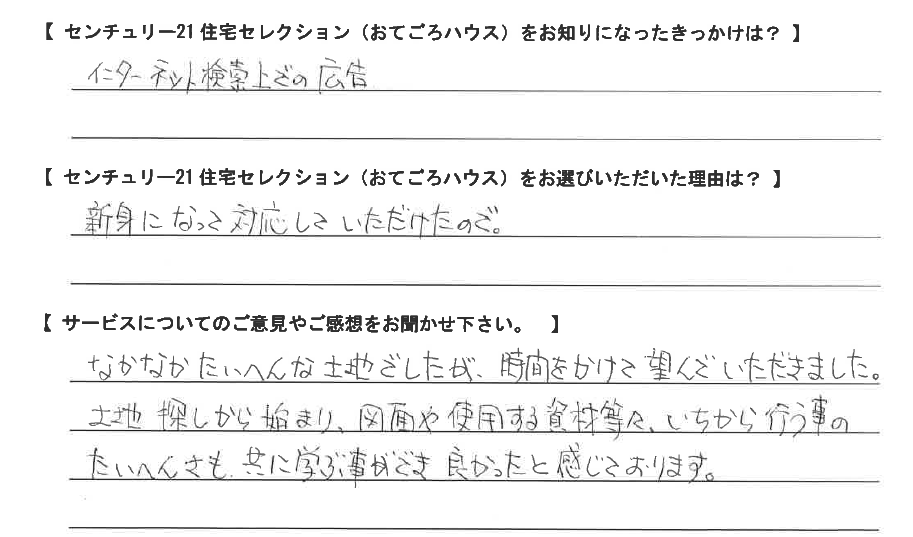 【 センチュリー21 住宅セレクション（おてごろハウス）をお知りになったきっかけは？ 】
インターネット検索上での広告
【 センチュリー21 住宅セレクション（おてごろハウス）をお選びいただいた理由は？ 】
新身になって対応していただけたので。
【 サービスについてのご意見やご感想をお聞かせ下さい。 】
なかなかたいへんな土地でしたが、時間をかけて望んでいただきました。
土地探しから始まり、図面や使用する資材等々、いちから行う事の
たいへんさも、共に学ぶ事ができ良かったと感じております。